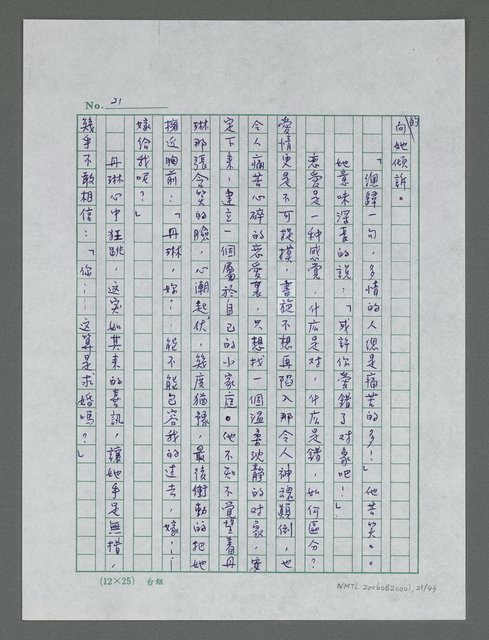 No. 21
的
向她傾訴。
「總歸一句,多情的人總是痛苦的多!」他苦笑。
她意味深長的說:「或許你愛錯了對象吧!」
戀愛是一種感覺,什麼是對,什麼是錯,如何區分?
愛情更是不可捉摸,書旋不想再陷入那令人神魂顛倒,也
令人痛苦心碎的戀愛裏,只想找一個溫柔沈靜的對象,安
定下來,建立一個屬於自己的小家庭。他不知不覺望着丹
琳那張含笑的臉,心潮起伏,幾度猶豫,最後衝動的把她
擁近胸前:「丹琳,妳……能不能包容我的過去,嫁……
嫁給我呢?」
丹琳心中狂跳,這突如其來的喜訊,讓她手足無措,
幾乎不敢相信:「你……這算是求婚嗎?」
(12×25) 台組
NMTL 20060820001, 21/43